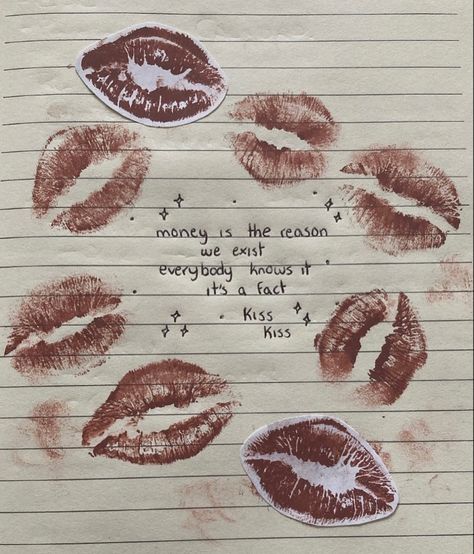 money is the reason
we exist
everybody knows it
it's a fact
Kiss
Kiss